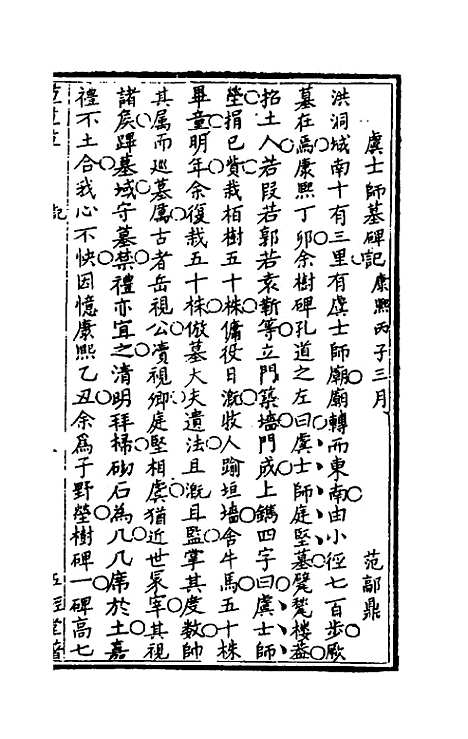 虞士師墓碑記 康熙丙子三月
范鄗鼎
洪洞城南十有三里有虞士師廟廟轉而東南由小徑七百步厥
墓在焉康熙丁卯余樹碑孔道之左曰虞士師庭堅墓凳甃樓葢
招土人若段若郭若袁靳等立門築墻門成上鐫四字曰虞士師
塋捐己貲栽栢樹五十株傭役日漑牧人踰垣墻舍牛馬五十株
畢童明年余復栽五十株倣墓大夫遺法且漑且監掌其度數帥
其属而巡墓厲古者岳視公瀆視卿庭堅相虞猶近世冢宰其視
諸侯蹕墓域守墓禁禮亦宜之清明拜掃砌石為几几席於土嘉
禮不土合我心不快因憶康熙乙丑余為子野塋樹碑一碑高七
記
五經堂